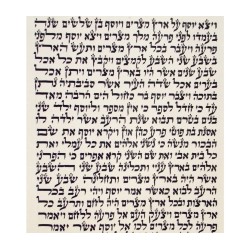 ויצא יוסף על ארץ מצרים ויוסף בן שלשים שנה
בעמדו לפני פרעה מלך מצרים ויצא יוסף מלפני
פרעה ויעבר בכל ארץ מצרים ותעש הארץ
בשבע שני השבע לקמצים ויקבץ את כל אכל
שבע שנים אשר היו בארץ מצרים ויתן אכל
בערים אכל שדה העיר אשר סביבתיה נתן
בתוכה ויצבר יוסף בר כחול הים הרבה מאד
עד כי חדל לספר כי אין מספר וליוסף ילד שני
בנים בטרם תבוא שנת הרעב אשר ילדה לו
אסנת בת פוטי פרע כהן און ויקרא יוסף את שם
הבכור מנשה כי נשני אלהים את כל עמלי ואת
כל בית אבי ואת שם השני קרא אפרים כי הפרני
אלהים בארץ עניי ותכלינה שבע שני השבע
אשר היה בארץ מצרים ותחלינה שבע שני
הרעב לבוא כאשר אמר יוסף ויהי רעב בכל
הארצות ובכל ארץ מצרים היה לחם ותרעב
כל ארץ מצרים ויצעק העם אל פרעה ללחם ויאמר
פרעה לכל מצרים לכו אל יוסף אשר יאמר